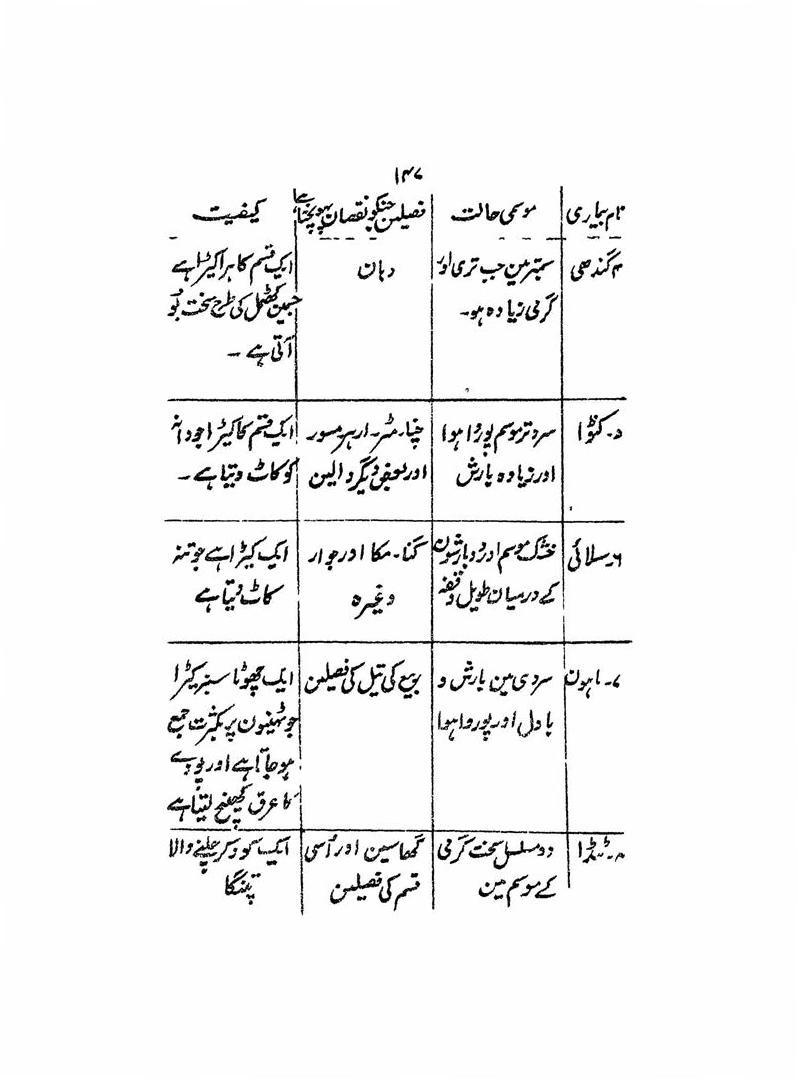 ۱۴۷
نام بیماری | موسمی حالت | فصلین جنکو نقصان پہونچتا ہے | کیفیت
۴ گندھی | ستمبر مین جب تری اور | دہان | ایک قسم کا ہرا کیڑا ہے
گرمی زیادہ ہو۔ | جسمین کھٹمل کی طرح سخت بُو
آتی ہے ۔
۵۔ کٹوا | سرد تر موسم پوروا ہوا | چنا۔ مٹر۔ ارہر مسور | ایک قسم کا کیڑا جو دانہ
اور زیادہ بارش | اور بعض دیگر دالین | کو کاٹ دیتا ہے ۔
۶۔ سلائی | خشک موسم اور دو بارشون | گنا۔ مکا اور جوار | ایک کیڑا ہے جو تنہ
کے درمیان طویل وقفہ | وغیرہ | کاٹ دیتا ہے
۷۔ ماہون | سردی مین بارش و | ربیع کی تیل کی فصلین | ایک چھوٹا سبز کیڑا
بادل اور پوروا ہوا | جو ٹہنیون پر بکثرت جمع
ہو جاتا ہے اور پودے
کا عرق کھینچ لیتا ہے
۸۔ ٹڈا | دو مسلسل سخت گرمی | گھاسین اور اُسی | ایک کود کر چلنے والا
کے موسم مین | قسم کی فصلین | پتنگا